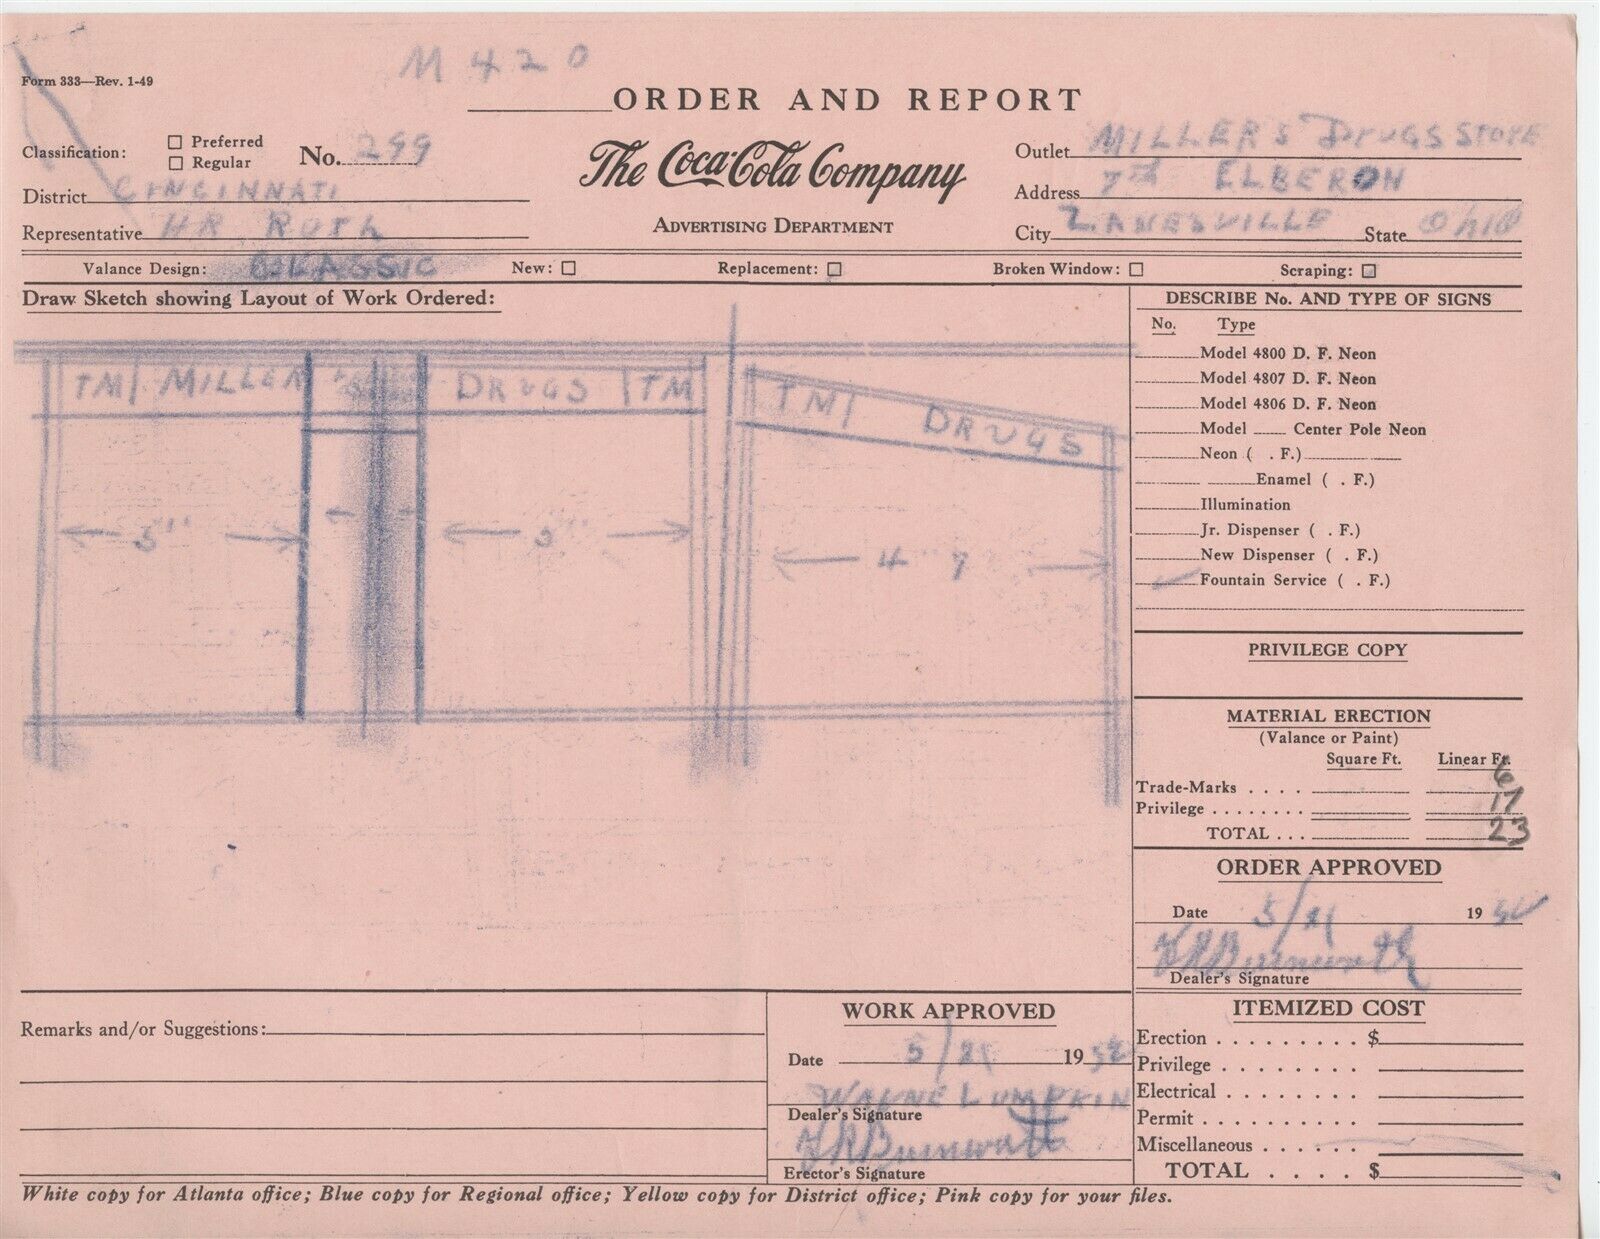 M 420
Form 333—Rev. 1-49
ORDER AND REPORT
Classification: ☐ Preferred
☐ Regular
No. 299
The Coca-Cola Company
ADVERTISING DEPARTMENT
Outlet MILLERS DRUGS STORE
District CINCINNATI
Address 7TH ELBERON
Representative HR ROTH
City ZANESVILLE State OhIO
Valance Design: CLASSIC New: ☐ Replacement: ☐ Broken Window: ☐ Scraping: ☐
Draw Sketch showing Layout of Work Ordered:
TM MILLER DRUGS TM TM DRUGS
5' 5' 4 7
DESCRIBE No. AND TYPE OF SIGNS
No. Type
Model 4800 D. F. Neon
Model 4807 D. F. Neon
Model 4806 D. F. Neon
Model Center Pole Neon
Neon ( . F.)
Enamel ( . F.)
Illumination
Jr. Dispenser ( . F.)
New Dispenser ( . F.)
Fountain Service ( . F.)
PRIVILEGE COPY
MATERIAL ERECTION
(Valance or Paint)
Square Ft. Linear Ft.
Trade-Marks . . . . 6
Privilege . . . . . . . . 17
TOTAL . . . 23
ORDER APPROVED
Date 5/21 19
HR Burnworth
Dealer's Signature
Remarks and/or Suggestions:
WORK APPROVED
Date 5/21 19 52
WAYNE LUMPKIN
Dealer's Signature
HR Burnworth
Erector's Signature
ITEMIZED COST
Erection . . . . . . . . . $
Privilege . . . . . . . .
Electrical . . . . . . . .
Permit . . . . . . . . . .
Miscellaneous . . . . . .
TOTAL . . . . $
White copy for Atlanta office; Blue copy for Regional office; Yellow copy for District office; Pink copy for your files.